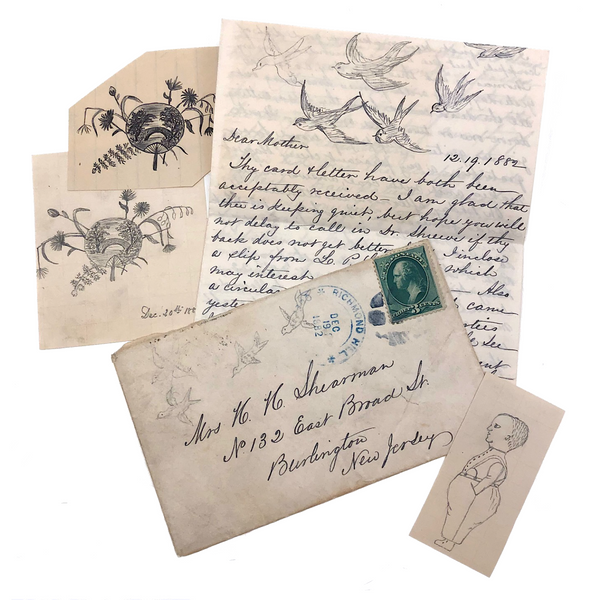 Dear Mother
12.19.1882
Thy card & letter have both been
acceptably received – I am glad that
thee is keeping quiet, but hope you will
not delay to call in Dr. Shreve if thy
back does not get better. I inclose
a slip from L. P. which
may interest Also
a circular came
yester
See
Dec. 20th 188
RICHMOND HILL
DEC
19
1882
Mrs H. H. Shearman
No 132 East Broad St.
Burlington
New Jersey